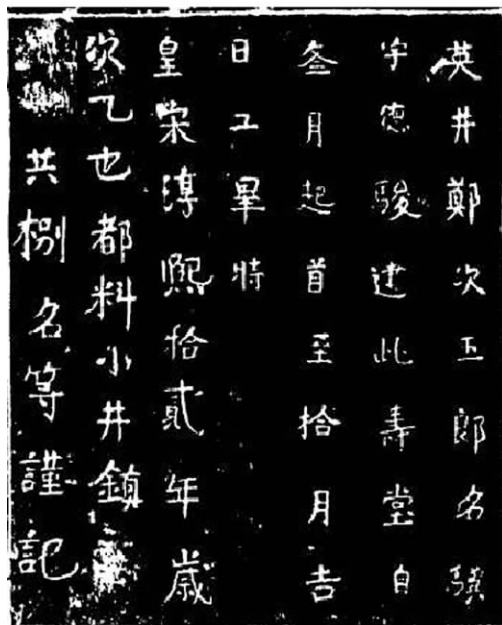 英井鄭次五郎名
字德駿建此壽堂自
叁月起首至拾月吉
日工畢時
皇宋淳熙拾貳年歲
次乙巳都料小井鎮
共捌名等謹記